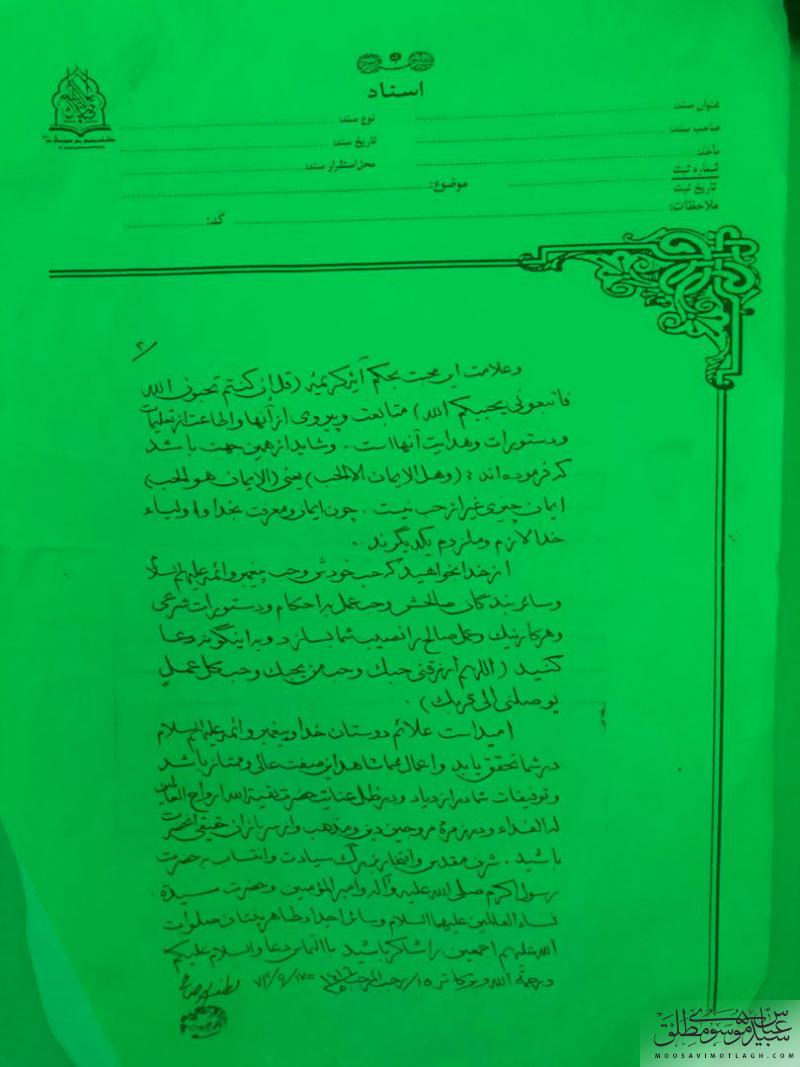 اسناد
عنوان سند:
نوع سند:
صاحب سند:
تاریخ سند:
مأخذ:
محل استقرار سند:
شماره ثبت
تاریخ ثبت
موضوع:
ملاحظات:
کد:
۲/
و علامت این محبت بحکم آیۀ کریمۀ (قل ان کنتم تحبون الله
فاتبعونی یحببکم الله) متابعت و پیروی از آنها و اطاعت از تعلیمات
و دستورات و هدایت آنها است . و شاید از همین جهت باشد
که فرموده اند : (و هل الایمان الا الحب) یعنی (الایمان هو الحب)
ایمان چیزی غیر از حب نیست . چون ایمان و معرفت بخدا و اولیاء
خدا لازم و ملزوم یکدیگرند .
از خدا بخواهید که حب خودش و حب پیغمبر و ائمه علیهم السلام
و سائر بندگان صالحش و حب عمل بر احکام و دستورات شرعی
و هر کار نیک و عمل صالح را نصیب شما بسازد و به اینگونه دعا
کنید (اللهم ارزقنی حبك و حب من یحبك و حب کل عملٍ
یوصلنی الی قربك) .
امید است علائم دوستان خدا و پیغمبر و ائمه علیهم السلام
در شما تحقق یابد و اعمال شما شاهد این صفت عالی و ممتاز باشد
و توفیقات شما در ازدیاد و در ظل عنایت حضرت بقیة الله ارواح العالمین
له الفداء و در زمرۀ مروجین دین و مذهب و از سربازان حقیقی آنحضرت
باشید . شرف مقدس و افتخار بزرگ سیادت و انتساب به حضرت
رسول اکرم صلی الله علیه و آله و امیرالمؤمنین و حضرت سیدة
نساء العالمین علیها السلام و سائر اجداد طاهرینتان صلوات
الله علیهم اجمعین را شاکر باشید با التماس دعا والسلام علیکم
و رحمة الله و برکاته ۱۵/ رجب المرجب ۱۴۱۶ = ۷۴/۹/۱۷
لطف الله صافی
سید عباس موسوی مطلق
MOOSAVIMOTLAGH.COM